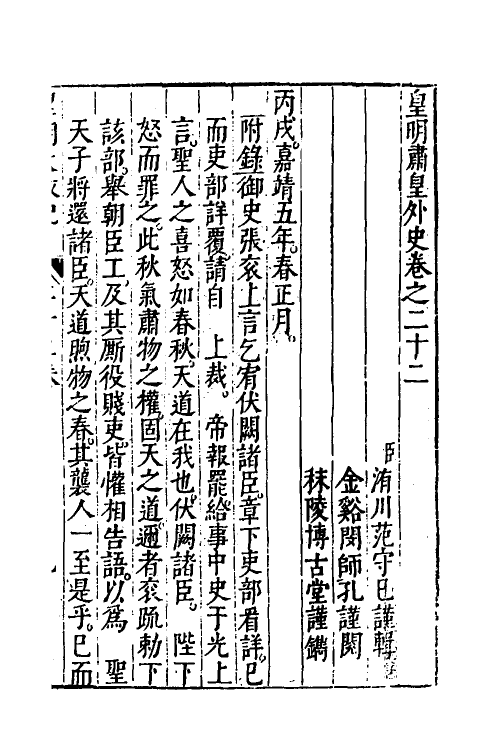 皇明肅皇外史卷之二十二
臣洧川范守己謹輯
金谿閔師孔謹閱
秣陵博古堂謹鐫
丙戌。嘉靖五年。春正月。
附錄御史張衮上言乞宥伏闕諸臣。章下吏部看詳。已
而吏部詳覆。請自 上裁。 帝報罷。給事中史于光上
言。聖人之喜怒如春秋。天道在我也。伏闕諸臣。 陛下
怒而罪之。此秋氣肅物之權。固天之道。邇者衮疏。勅下
該部。舉朝臣工。及其厮役賤吏。皆懽相告語。以爲 聖
天子將還諸臣。天道煦物之春。其襲人一至是乎。已而